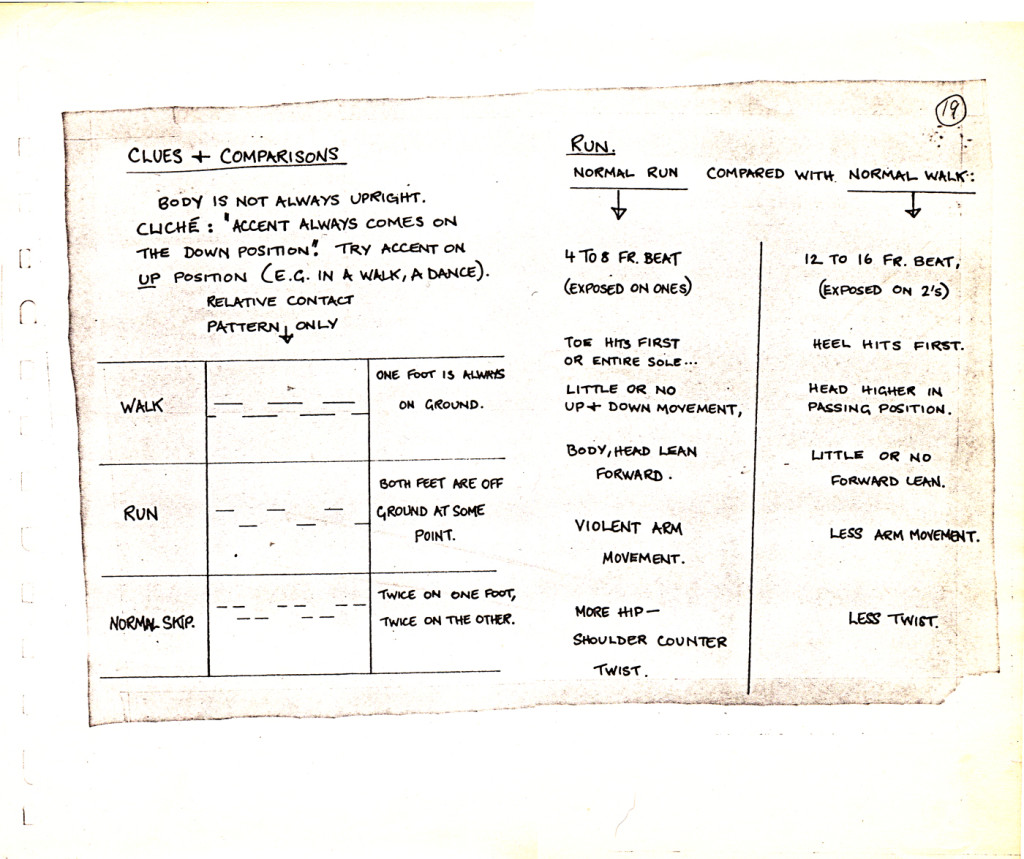 19
CLUES + COMPARISONS
BODY IS NOT ALWAYS UPRIGHT.
CLICHÉ : "ACCENT ALWAYS COMES ON
THE DOWN POSITION". TRY ACCENT ON
UP POSITION (E.G. IN A WALK, A DANCE).
RELATIVE CONTACT
PATTERN ONLY
WALK
ONE FOOT IS ALWAYS
ON GROUND.
RUN
BOTH FEET ARE OFF
GROUND AT SOME
POINT.
NORMAL SKIP.
TWICE ON ONE FOOT,
TWICE ON THE OTHER.
RUN.
NORMAL RUN COMPARED WITH NORMAL WALK:
4 TO 8 FR. BEAT
(EXPOSED ON ONES)
TOE HITS FIRST
OR ENTIRE SOLE...
LITTLE OR NO
UP + DOWN MOVEMENT,
BODY, HEAD LEAN
FORWARD.
VIOLENT ARM
MOVEMENT.
MORE HIP-
SHOULDER COUNTER
TWIST.
12 TO 16 FR. BEAT,
(EXPOSED ON 2'S)
HEEL HITS FIRST.
HEAD HIGHER IN
PASSING POSITION.
LITTLE OR NO
FORWARD LEAN.
LESS ARM MOVEMENT.
LESS TWIST.